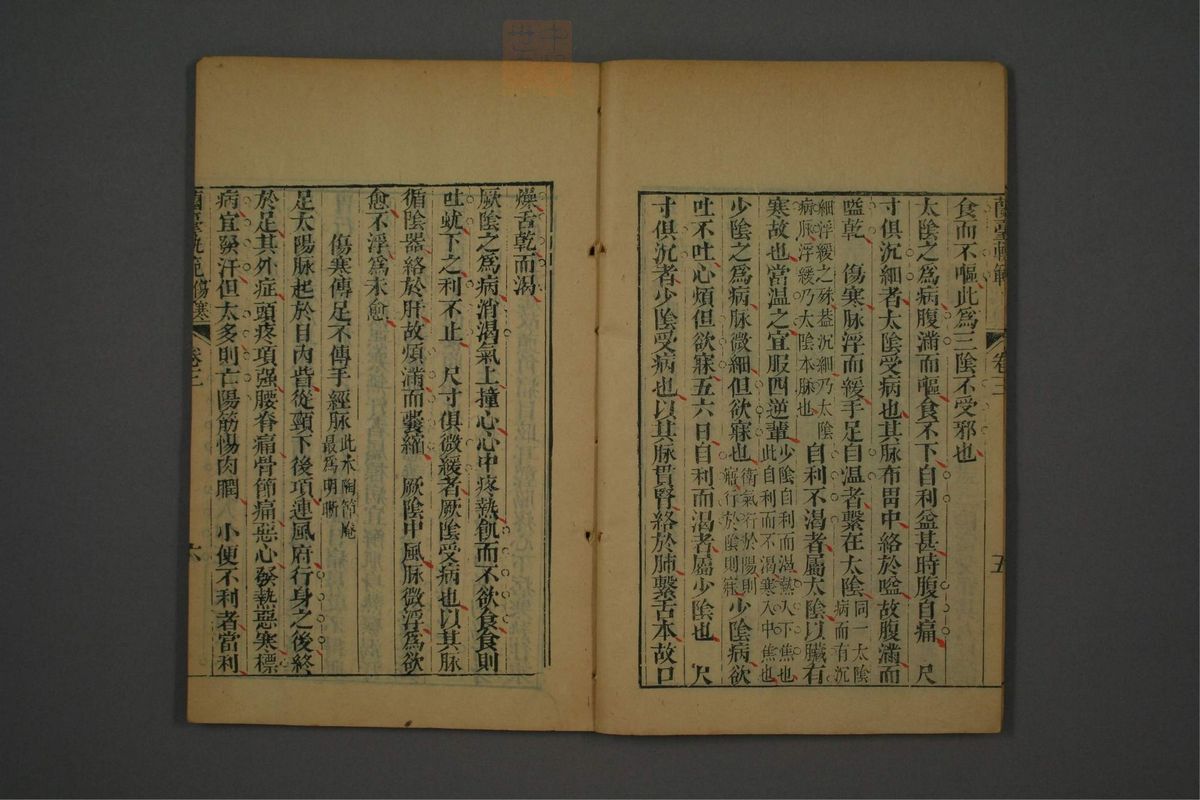 蘭臺軌範
卷三
五
食而不嘔此為三陰不受邪也
太陰之為病腹滿而嘔食不下自利益甚時腹自痛 尺
寸俱沉細者太陰受病也其脉布胃中絡於嗌故腹滿而
嗌乾 傷寒脉浮而緩手足自温者繫在太陰同一太陰病而有沉
細浮緩之殊葢沉細乃太陰病脉浮緩乃太陰本脉也 自利不渴者屬太陰以臟有
寒故也當温之宜服四逆輩少陰自利而渴熱入下焦也此自利而不渴寒入中焦也
少陰之為病脉微細但欲寐也衛氣行於陽則寤行於陰則寐 少陰病欲
吐不吐心煩但欲寐五六日自利而渴者屬少陰也 尺
寸俱沉者少陰受病也以其脉貫腎絡於肺繫舌本故口
燥舌乾而渴
厥陰之為病消渴氣上撞心心中疼熱飢而不欲食食則
吐蚘下之利不止 尺寸俱微緩者厥陰受病也以其脉
循陰器絡於肝故煩滿而囊縮 厥陰中風脉微浮為欲
愈不浮為未愈
傷寒傳足不傳手經脉此本陶節庵最為明晰
足太陽脉起於目內眥從頭下後項連風府行身之後終
於足其外症頭疼項强腰脊痛骨節痛惡心發熱惡寒標
病宜發汗但太多則亡陽筋惕肉瞤 小便不利者當利
蘭臺軌範 傷寒
卷三
六